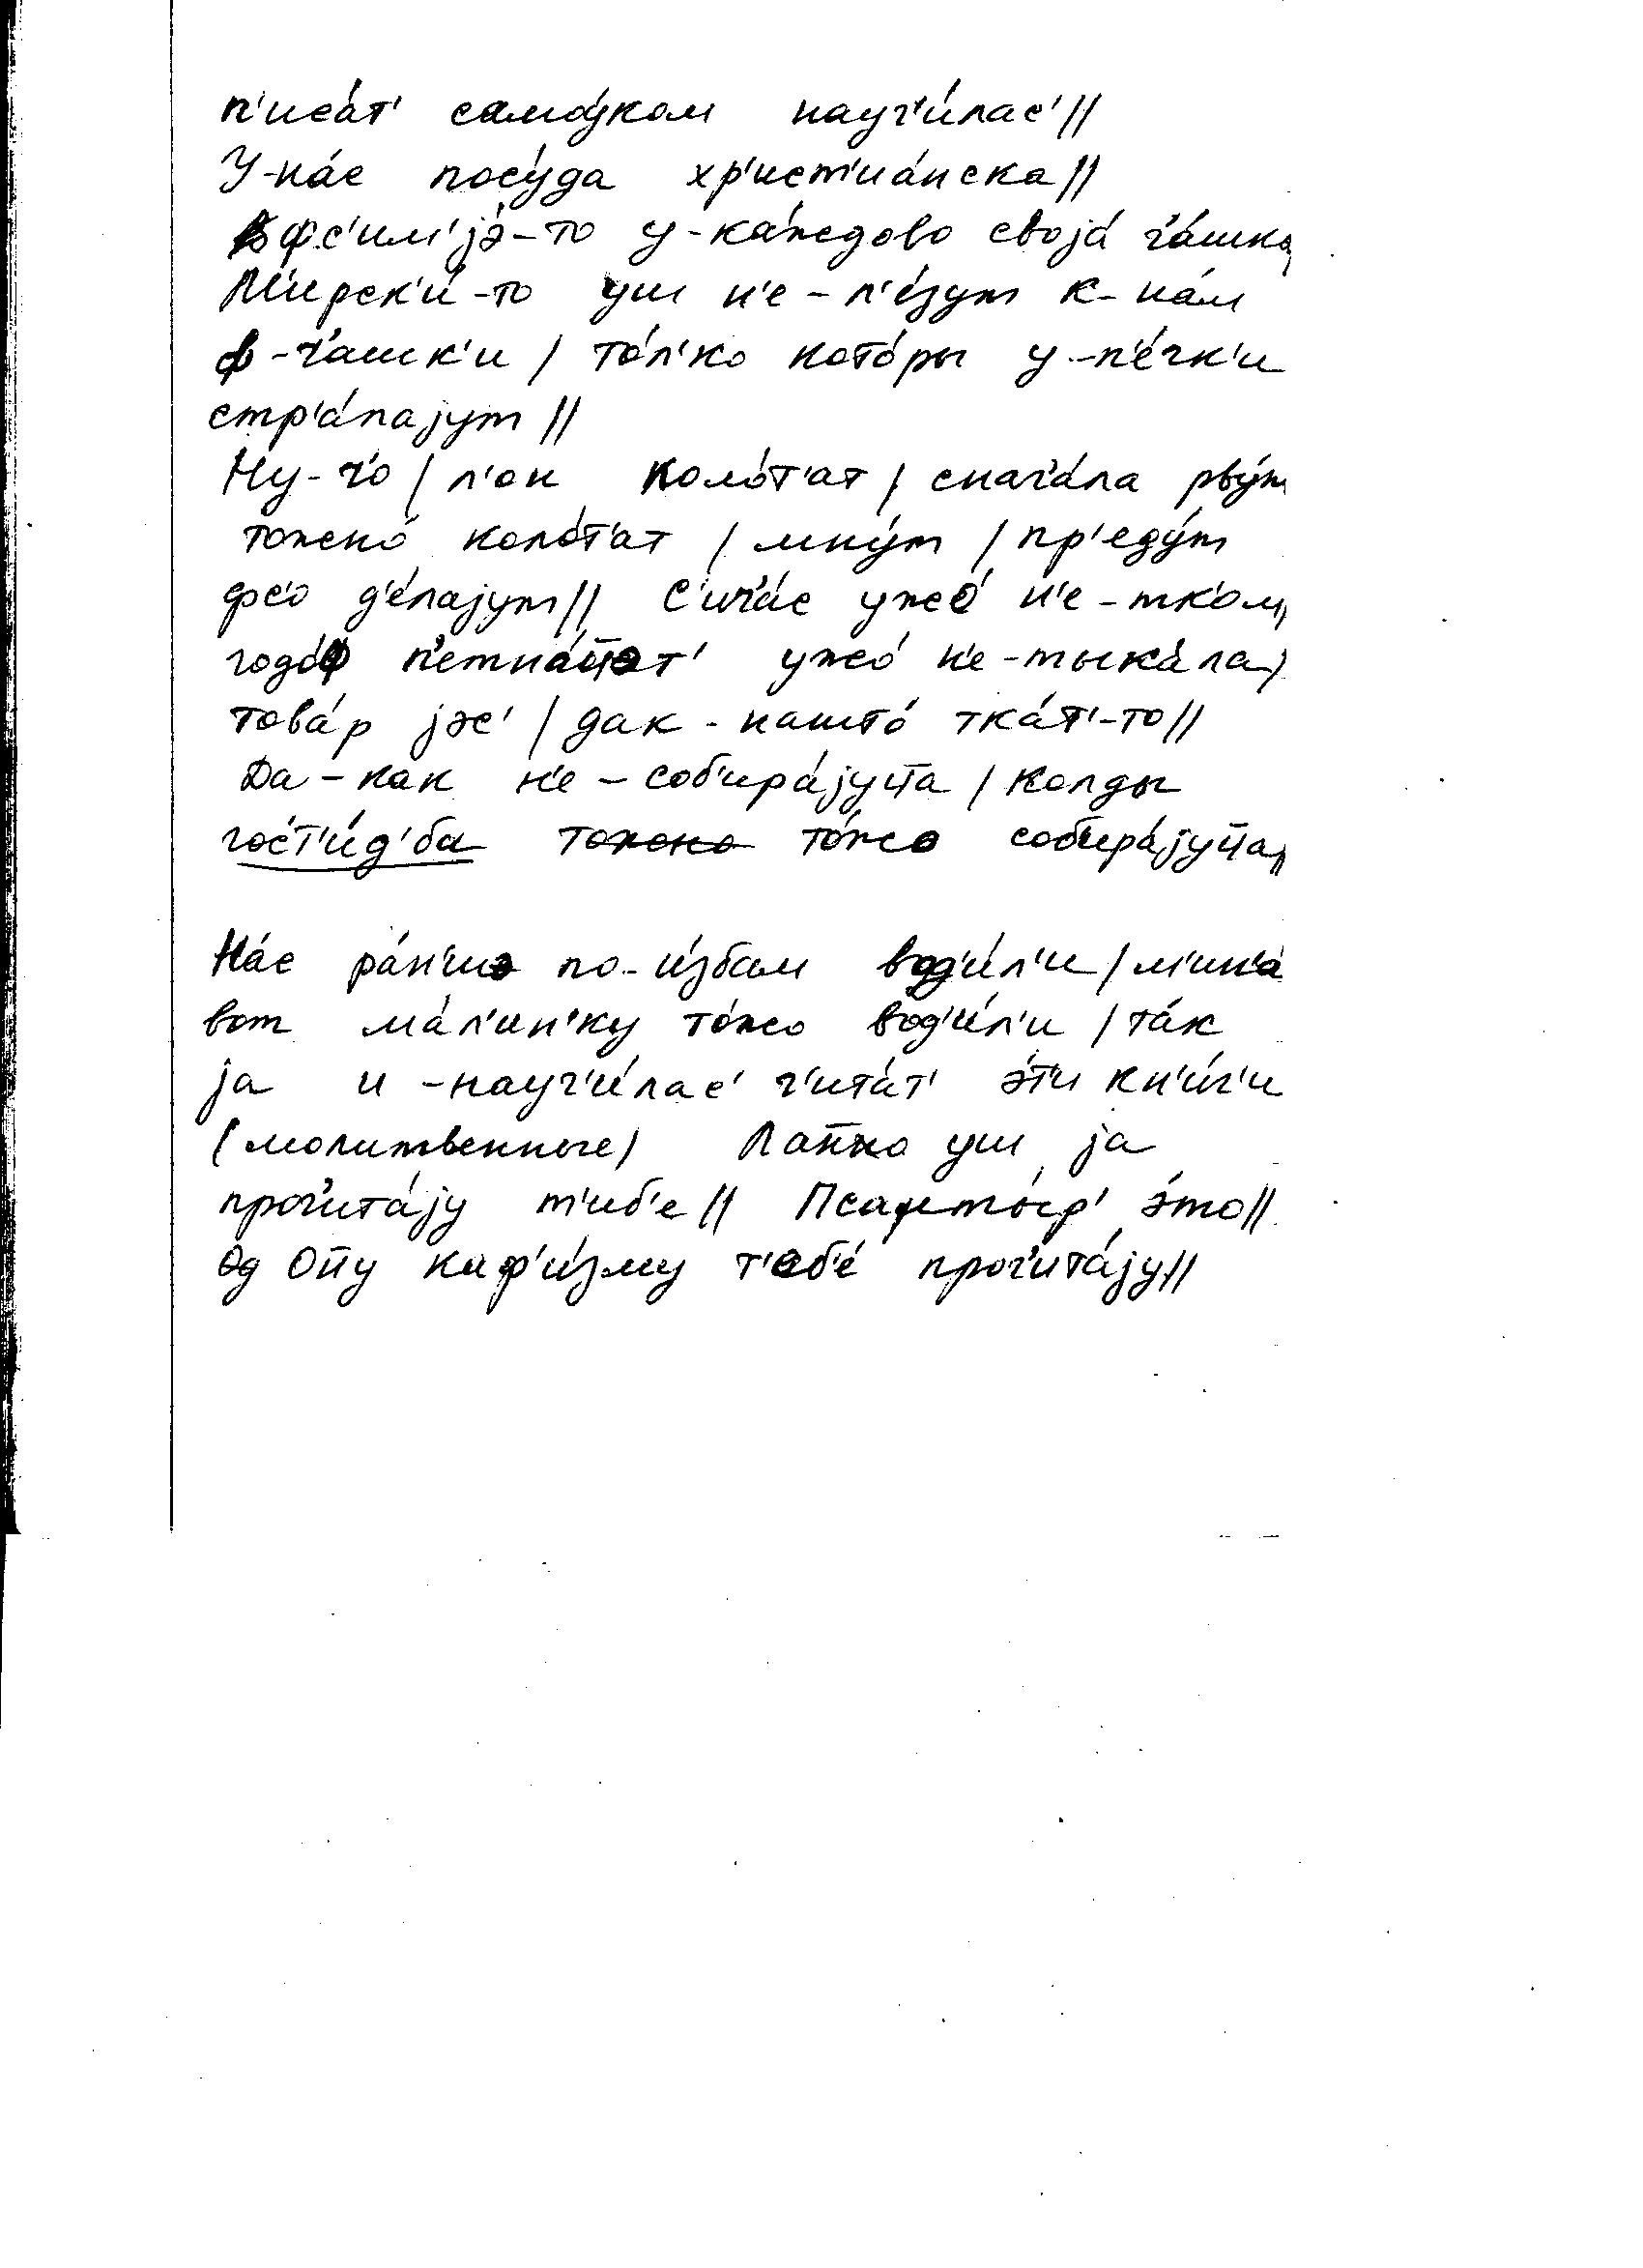 п'иса́т' само́уком науч'и́лас'//
У-на́с посу́да хр'ист'иа́нска//
фс'им'jэ́-то у-ка́ждово своjа́ ч'а́шка,
М'ирск'и́-то уш н'е-л'е́зут к-на́м
ф-ч'а́шк'и / то́л'ко кото́ры у-п'е́чк'и
стр'а́паjут //
Ну-ч'о / л'он коло́т'ат / снач'а́ла рву́т
тожно́ коло́т'ат / мну́т / пр'еду́т
фс'о д'е́лаjут// С'ич'а́с ужо́ н'е-тк'ом,
годо́ф п'етна́ц̄эт' ужо́ н'е-тыка́ла)
това́р jэс' / дак-нашто́ тка́т'-то//
Да-как н'е-соб'ира́jуц̄а / колды
гос'т'и́д'ба тожно то́жо соб'ира́jуц̄а//
На́с ра́н'шэ по-и́збам вод'и́л'и / м'ин'а́
вот ма́л'ин'ку то́жо вод'и́л'и / та́к
jа и-науч'и́лас' ч'ита́т' э́т'и кн'и́г'и
(молитвенные) Ла̄но уш jа
проч'ита́jу т'иб'е // Псаутыр' э́то//
Од̄ну каф'и́зму т'еб'е́ проч'ита́jу//